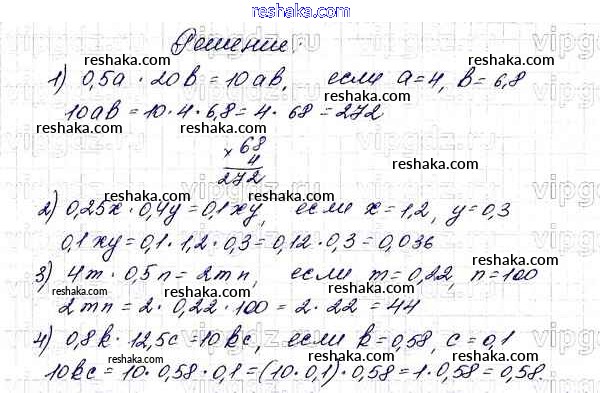 reshaka.com
Решение:
reshaka.com reshaka.com
1) 0,5a · 20b = 10ab, если a=4, b=6,8
10ab = 10 · 4 · 6,8 = 4 · 68 = 272
reshaka.com reshaka.com
× 68
4
272
reshaka.com reshaka.com
2) 0,25x · 0,4y = 0,1xy, если x=1,2, y=0,3
reshaka.com reshaka.com
0,1xy = 0,1 · 1,2 · 0,3 = 0,12 · 0,3 = 0,036
reshaka.com reshaka.com
3) 4m · 0,5n = 2mn, если m=0,22, n=100
reshaka.com reshaka.com
2mn = 2 · 0,22 · 100 = 2 · 22 = 44
reshaka.com reshaka.com
4) 0,8k · 12,5c = 10kc, если k=0,58, c=0,1
reshaka.com reshaka.com
10kc = 10 · 0,58 · 0,1 = (10 · 0,1) · 0,58 = 1 · 0,58 = 0,58.
reshaka.com reshaka.com